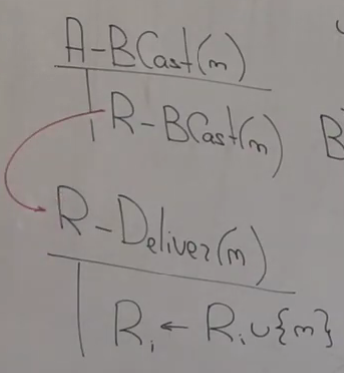 A-BCast(m)
R-BCast(m)
B
R-Deliver(m)
Rᵢ ← Rᵢ ∪ {m}